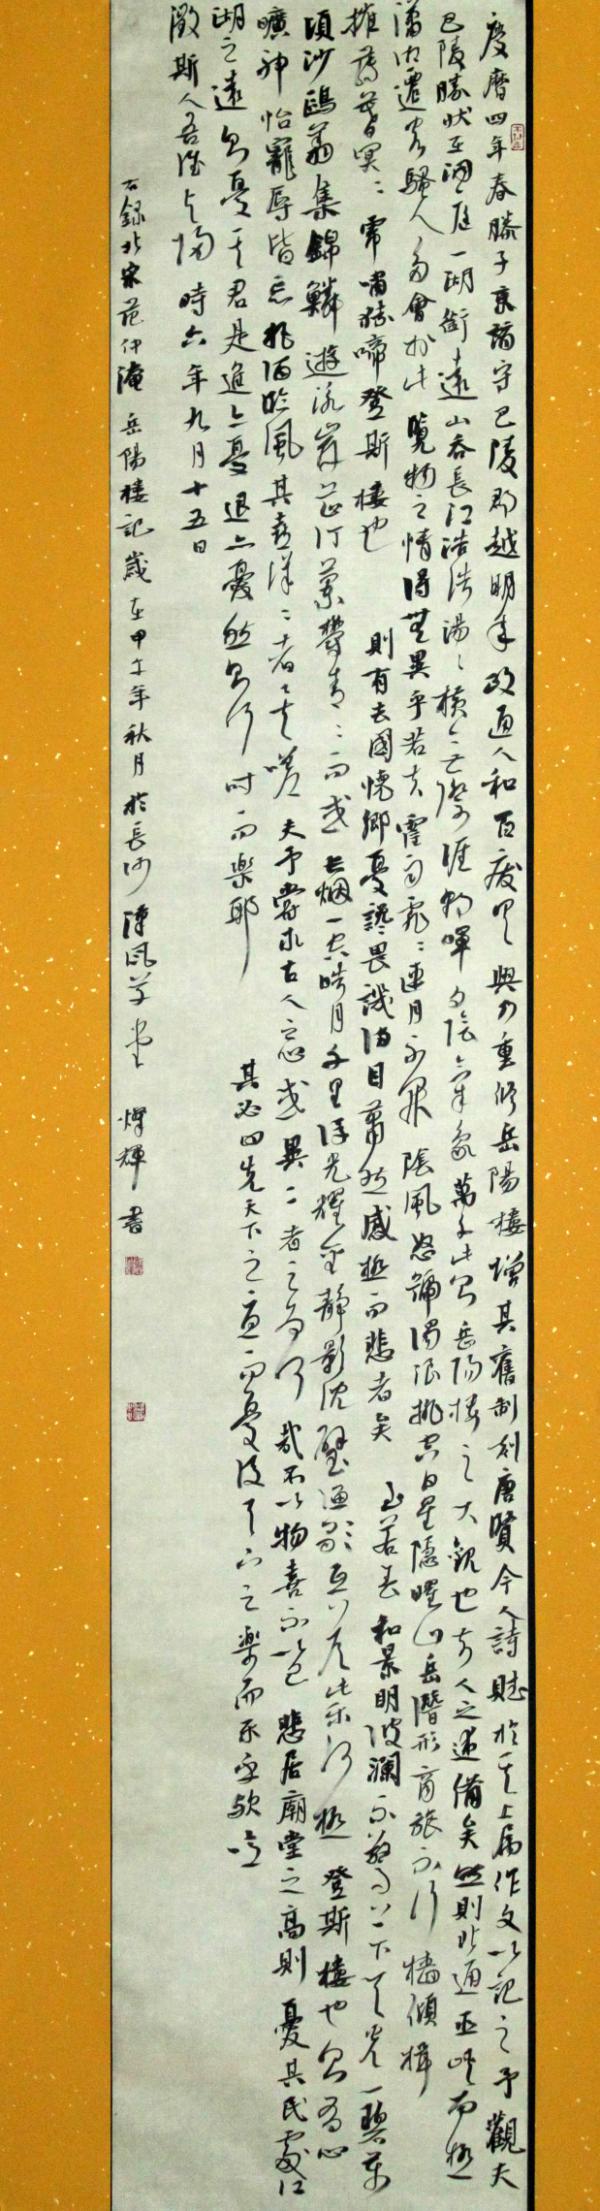 慶曆四年春滕子京謫守巴陵郡越明年政通人和百廢具興乃重修岳陽樓增其舊制刻唐賢今人詩賦於其上屬作文以記之予觀夫
巴陵勝狀在洞庭一湖銜遠山吞長江浩浩湯湯橫無際涯朝暉夕陰氣象萬千此則岳陽樓之大觀也前人之述備矣然則北通巫峽南極
瀟湘遷客騷人多會於此覽物之情得無異乎若夫霪雨霏霏連月不開陰風怒號濁浪排空日星隱曜山岳潛形商旅不行檣傾楫
摧薄暮冥冥虎嘯猿啼登斯樓也則有去國懷鄉憂讒畏譏滿目蕭然感極而悲者矣至若春和景明波瀾不驚上下天光一碧萬
頃沙鷗翕集錦鱗遊泳岸芷汀蘭鬱青青而或長烟一空皓月千里浮光耀金靜影沈璧漁歌互答此樂何極登斯樓也則有心
曠神怡寵辱皆忘把酒臨風其喜洋洋者矣嗟夫予嘗求古人之心或異二者之為何哉不以物喜不以己悲居廟堂之高則憂其民處江
湖之遠則憂其君是進亦憂退亦憂然則何時而樂耶其必曰先天下之憂而憂後天下之樂而樂歟噫
微斯人吾誰與歸時六年九月十五日
右錄北宋范仲淹岳陽樓記歲在甲午年秋月於長沙陳風草堂輝書